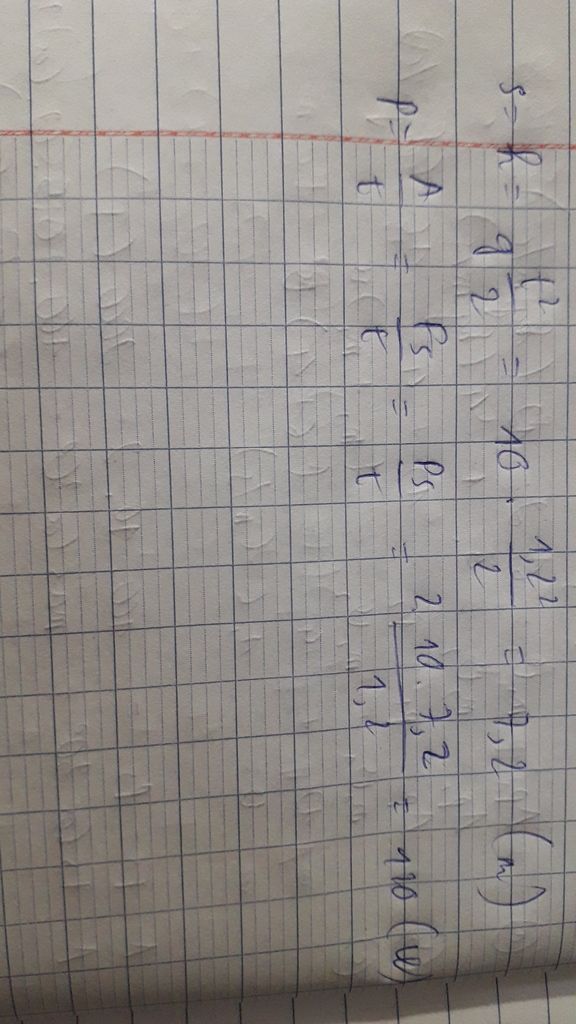 s = h = g t²/2 = 10 . 1,2²/2 = 7,2 (m)
P = A/t = Fs/t = Ps/t = 2 . 10 . 7,2/1,2 = 120 (W)